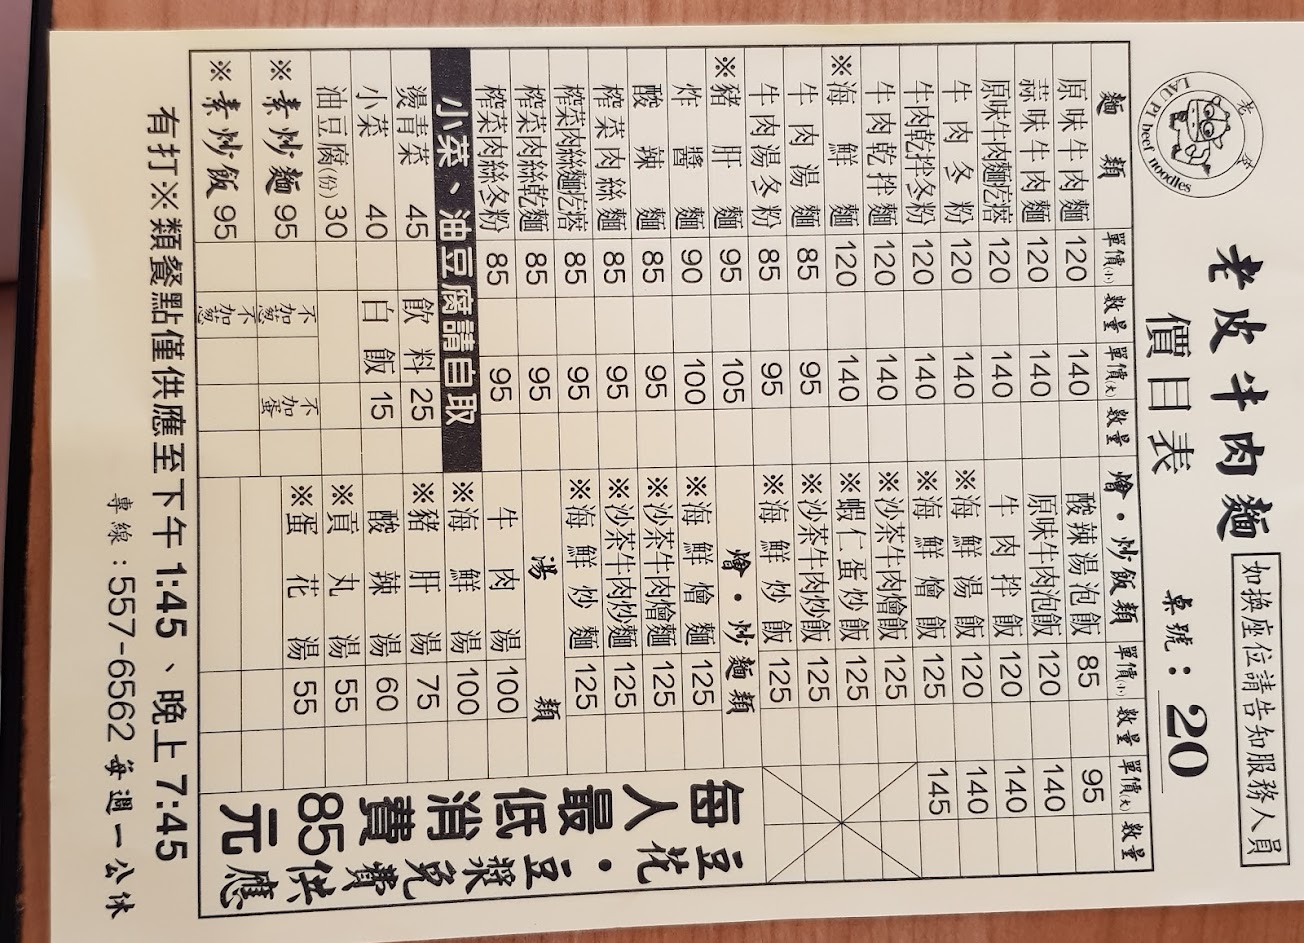 老皮
LAU PI beef noodles
老皮牛肉麵
價目表
如換座位請告知服務人員
桌號：20
麵類 單價(小) 數量 單價(大) 數量
原味牛肉麵 120 140
蒜味牛肉麵 120 140
原味牛肉麵疙瘩 120 140
牛肉冬粉 120 140
牛肉乾拌冬粉 120 140
牛肉乾拌麵 120 140
※海鮮麵 120 140
牛肉湯麵 85 95
牛肉湯冬粉 85 95
※豬肝麵 95 105
炸醬麵 90 100
酸辣麵 85 95
榨菜肉絲麵 85 95
榨菜肉絲麵疙瘩 85 95
榨菜肉絲乾麵 85 95
榨菜肉絲冬粉 85 95
小菜、油豆腐請自取
燙青菜 45 飲料 25
小菜 40 白飯 15
油豆腐(份) 30
※素炒麵 95 不加蔥 不加蛋
※素炒飯 95 不加蔥
燴・炒飯類 單價(小) 數量 單價(大) 數量
酸辣湯泡飯 85 95
原味牛肉泡飯 120 140
牛肉拌飯 120 140
※海鮮湯飯 120 140
※海鮮燴飯 125 145
※沙茶牛肉燴飯 125
※蝦仁蛋炒飯 125
※沙茶牛肉炒飯 125
※海鮮炒飯 125
燴・炒麵類
※海鮮燴麵 125
※沙茶牛肉燴麵 125
※沙茶牛肉炒麵 125
※海鮮炒麵 125
湯類
牛肉湯 100
※海鮮湯 100
※豬肝湯 75
酸辣湯 60
※貢丸湯 55
※蛋花湯 55
每人最低消費85元
豆花・豆漿免費供應
有打※類餐點僅供應至下午1:45、晚上7:45
專線：557-6562 每週一公休